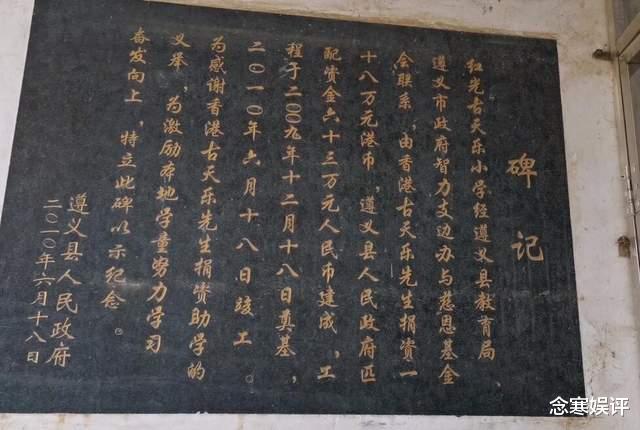 碑记
红光古天乐小学经遵义县教育局、
遵义市政府智力支边办与慈恩基金
会联系，由香港古天乐先生捐资一
十八万元港币，遵义县人民政府匹
配资金六十三万元人民币建成，工
程于二〇〇九年十二月十八日奠基，
二〇一〇年六月十八日竣工。
为感谢香港古天乐先生捐资助学的
义举，为激励本地学童努力学习
奋发向上，特立此碑以示纪念。
遵义县人民政府
二〇一〇年六月十八日
念寒娱评